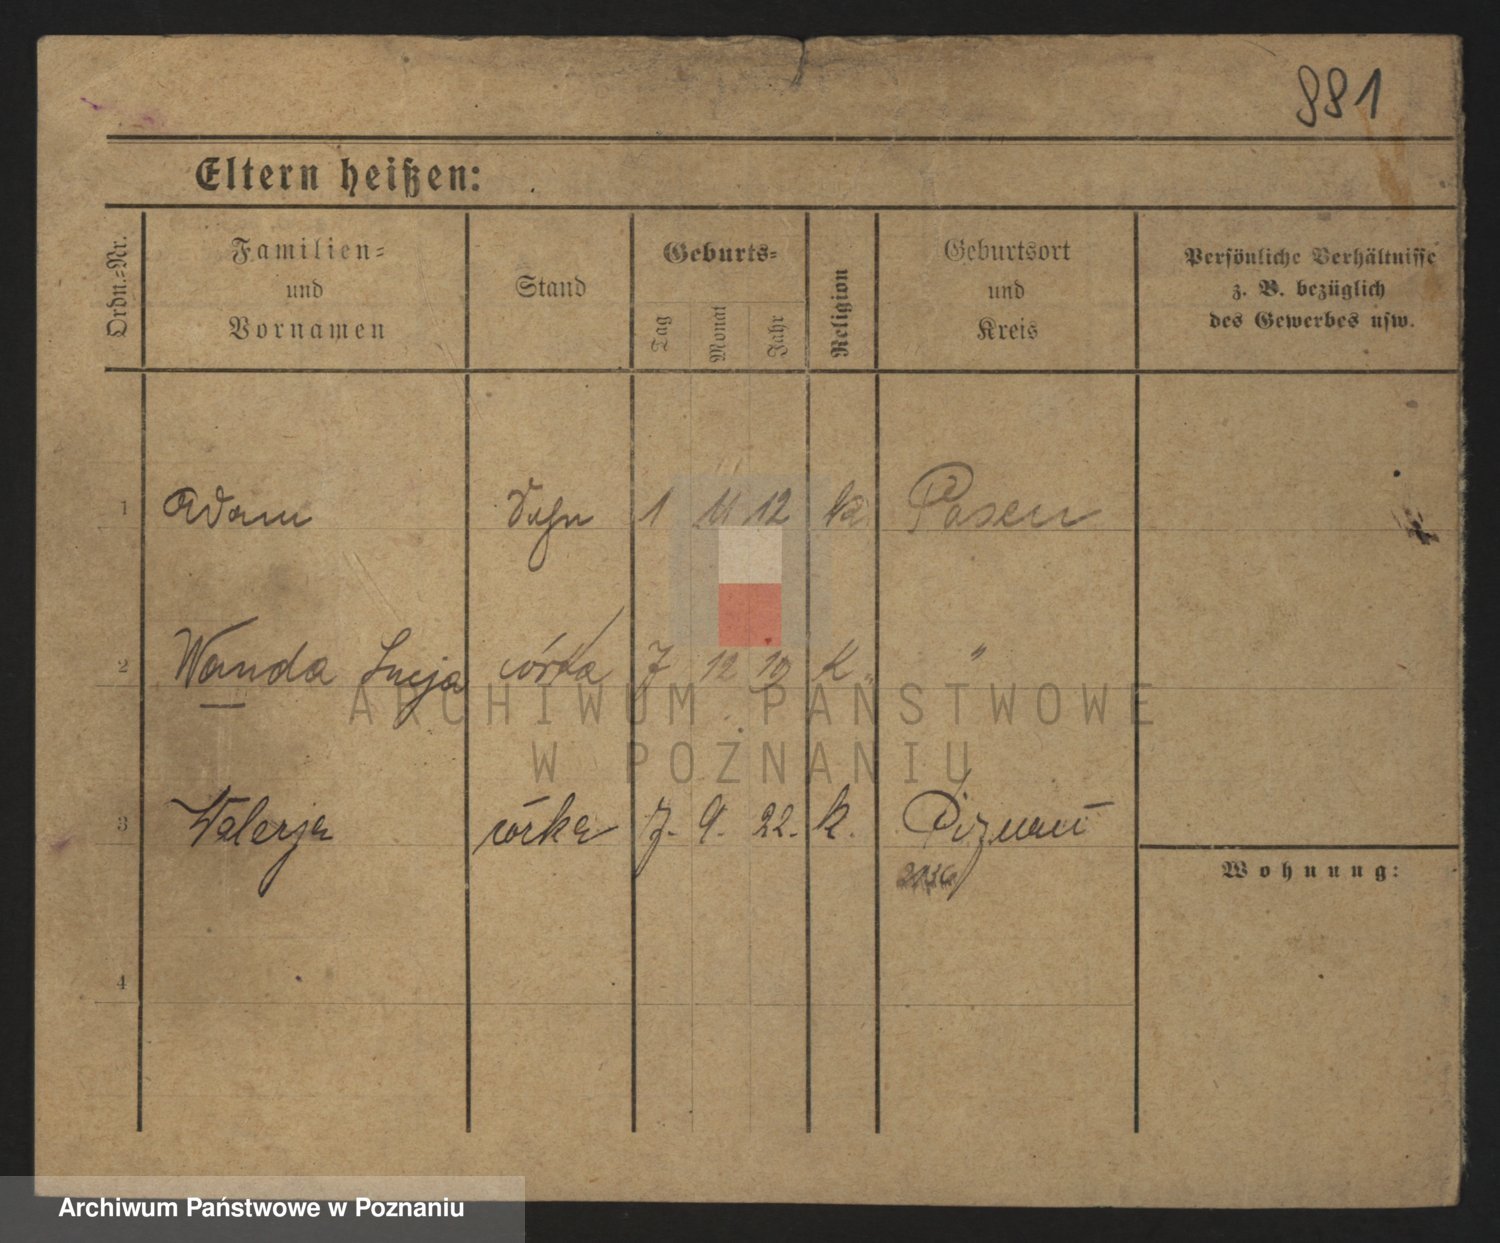 881
Eltern heißen:
Ordn.-Nr.
Familien-
und
Vornamen
Stand
Geburts-
Tag
Monat
Jahr
Religion
Geburtsort
und
Kreis
Persönliche Verhältnisse
z. B. bezüglich
des Gewerbes usw.
1 Adam Sohn 1 11 12 k Posen
2 Wanda Lucja córka 7 12 19 K "
ARCHIWUM PAŃSTWOWE
W POZNANIU
3 Walerja córka 7. 9. 22. k. Poznań
Wohnung:
4
Archiwum Państwowe w Poznaniu